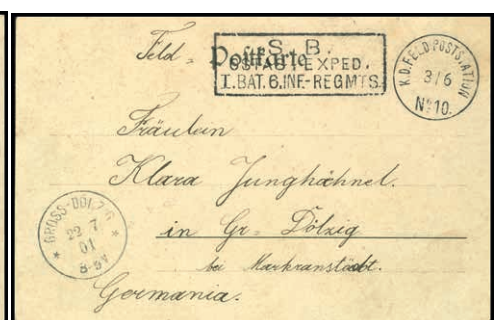 Feld- Postkarte
S. B.
OSTAS. EXPED.
I. BAT. 6. INF.-REGMTS.
K.D. FELD-POSTSTATION
3/6
No 10.
Fräulein
Klara Junghähnel.
in Gr. Dölzig
bei Markranstädt.
Germania.
GROSS-DÖLZIG
22 7
01
8-9V